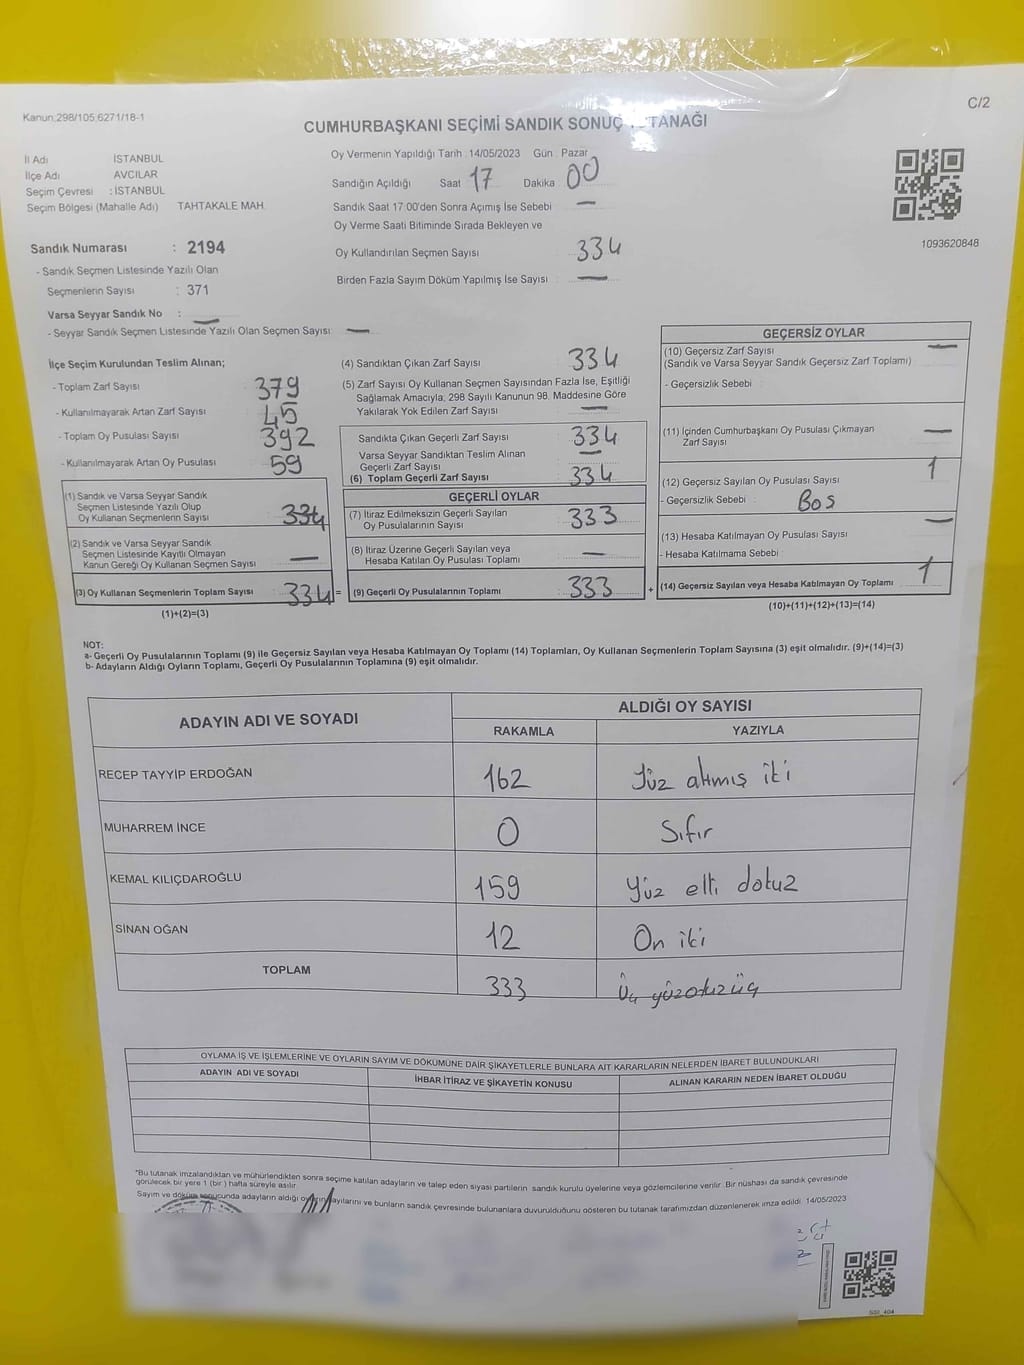 C/2
Kanun:298/105,6271/18-1
CUMHURBAŞKANI SEÇİMİ SANDIK SONUÇ TUTANAĞI
İl Adı İSTANBUL
İlçe Adı AVCILAR
Seçim Çevresi : İSTANBUL
Seçim Bölgesi (Mahalle Adı) TAHTAKALE MAH.
Sandık Numarası : 2194
- Sandık Seçmen Listesinde Yazılı Olan
Seçmenlerin Sayısı : 371
Varsa Seyyar Sandık No : —
- Seyyar Sandık Seçmen Listesinde Yazılı Olan Seçmen Sayısı: —
Oy Vermenin Yapıldığı Tarih : 14/05/2023 Gün : Pazar
Sandığın Açıldığı Saat 17 Dakika 00
Sandık Saat 17:00'den Sonra Açımış İse Sebebi —
Oy Verme Saati Bitiminde Sırada Bekleyen ve
Oy Kullandırılan Seçmen Sayısı 334
Birden Fazla Sayım Döküm Yapılmış İse Sayısı : —
1093620848
İlçe Seçim Kurulundan Teslim Alınan;
- Toplam Zarf Sayısı 379
- Kullanılmayarak Artan Zarf Sayısı 45
- Toplam Oy Pusulası Sayısı 392
- Kullanılmayarak Artan Oy Pusulası 59
(1) Sandık ve Varsa Seyyar Sandık
Seçmen Listesinde Yazılı Olup
Oy Kullanan Seçmenlerin Sayısı 334
(2) Sandık ve Varsa Seyyar Sandık
Seçmen Listesinde Kayıtlı Olmayan
Kanun Gereği Oy Kullanan Seçmen Sayısı : —
(3) Oy Kullanan Seçmenlerin Toplam Sayısı : 334 =
(1)+(2)=(3)
(4) Sandıktan Çıkan Zarf Sayısı 334
(5) Zarf Sayısı Oy Kullanan Seçmen Sayısından Fazla İse, Eşitliği
Sağlamak Amacıyla; 298 Sayılı Kanunun 98. Maddesine Göre
Yakılarak Yok Edilen Zarf Sayısı —
Sandıkta Çıkan Geçerli Zarf Sayısı 334
Varsa Seyyar Sandıktan Teslim Alınan
Geçerli Zarf Sayısı —
(6) Toplam Geçerli Zarf Sayısı 334
GEÇERLİ OYLAR
(7) İtiraz Edilmeksizin Geçerli Sayılan
Oy Pusulalarının Sayısı 333
(8) İtiraz Üzerine Geçerli Sayılan veya
Hesaba Katılan Oy Pusulası Toplamı —
(9) Geçerli Oy Pusulalarının Toplamı 333 +
GEÇERSİZ OYLAR
(10) Geçersiz Zarf Sayısı —
(Sandık ve Varsa Seyyar Sandık Geçersiz Zarf Toplamı)
- Geçersizlik Sebebi :
(11) İçinden Cumhurbaşkanı Oy Pusulası Çıkmayan
Zarf Sayısı —
(12) Geçersiz Sayılan Oy Pusulası Sayısı 1
- Geçersizlik Sebebi : Boş
(13) Hesaba Katılmayan Oy Pusulası Sayısı —
- Hesaba Katılmama Sebebi :
(14) Geçersiz Sayılan veya Hesaba Katılmayan Oy Toplamı 1
(10)+(11)+(12)+(13)=(14)
NOT:
a- Geçerli Oy Pusulalarının Toplamı (9) ile Geçersiz Sayılan veya Hesaba Katılmayan Oy Toplamı (14) Toplamları, Oy Kullanan Seçmenlerin Toplam Sayısına (3) eşit olmalıdır. (9)+(14)=(3)
b- Adayların Aldığı Oyların Toplamı, Geçerli Oy Pusulalarının Toplamına (9) eşit olmalıdır.
ADAYIN ADI VE SOYADI ALDIĞI OY SAYISI
RAKAMLA YAZIYLA
RECEP TAYYİP ERDOĞAN 162 Yüz altmış iki
MUHARREM İNCE 0 Sıfır
KEMAL KILIÇDAROĞLU 159 Yüz elli dokuz
SİNAN OĞAN 12 On iki
TOPLAM 333 Üç yüzotuzüç
OYLAMA İŞ VE İŞLEMLERİNE VE OYLARIN SAYIM VE DÖKÜMÜNE DAİR ŞİKAYETLERLE BUNLARA AİT KARARLARIN NELERDEN İBARET BULUNDUKLARI
ADAYIN ADI VE SOYADI İHBAR İTİRAZ VE ŞİKAYETİN KONUSU ALINAN KARARIN NEDEN İBARET OLDUĞU
*Bu tutanak imzalandıktan ve mühürlendikten sonra seçime katılan adayların ve talep eden siyasi partilerin sandık kurulu üyelerine veya gözlemcilerine verilir. Bir nüshası da sandık çevresinde
görülecek bir yere 1 (bir ) hafta süreyle asılır.
Sayım ve döküm sonucunda adayların aldığı oyların sayılarını ve bunların sandık çevresinde bulunanlara duyurulduğunu gösteren bu tutanak tarafımızdan düzenlenerek imza edildi. 14/05/2023